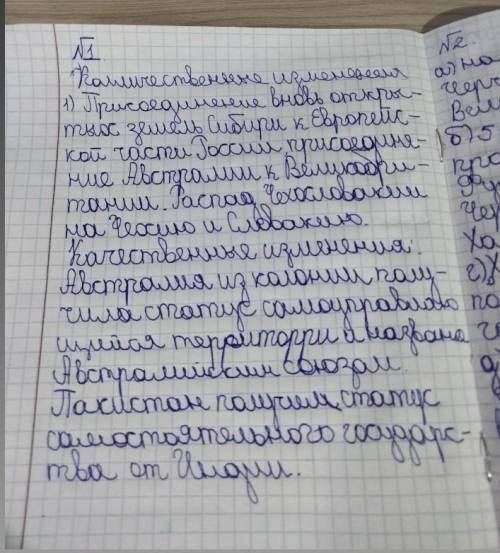 №1
Количественные изменения
1) Присоединение вновь откры-
тых земель Сибири к Европейс-
кой части России присоедине-
ние Австралии к Великобри-
тании. Распад Чехословакии
на Чехию и Словакию.
Качественные изменения:
Австралия из колонии полу-
чила статус самоуправляю
щийся территорри и названа
Австралийским союзом.
Пакистан получил статус
самостоятельного государс-
тва от Индии.
№2.
а) на
Черт
Вели
б) 5
Чер
Хо